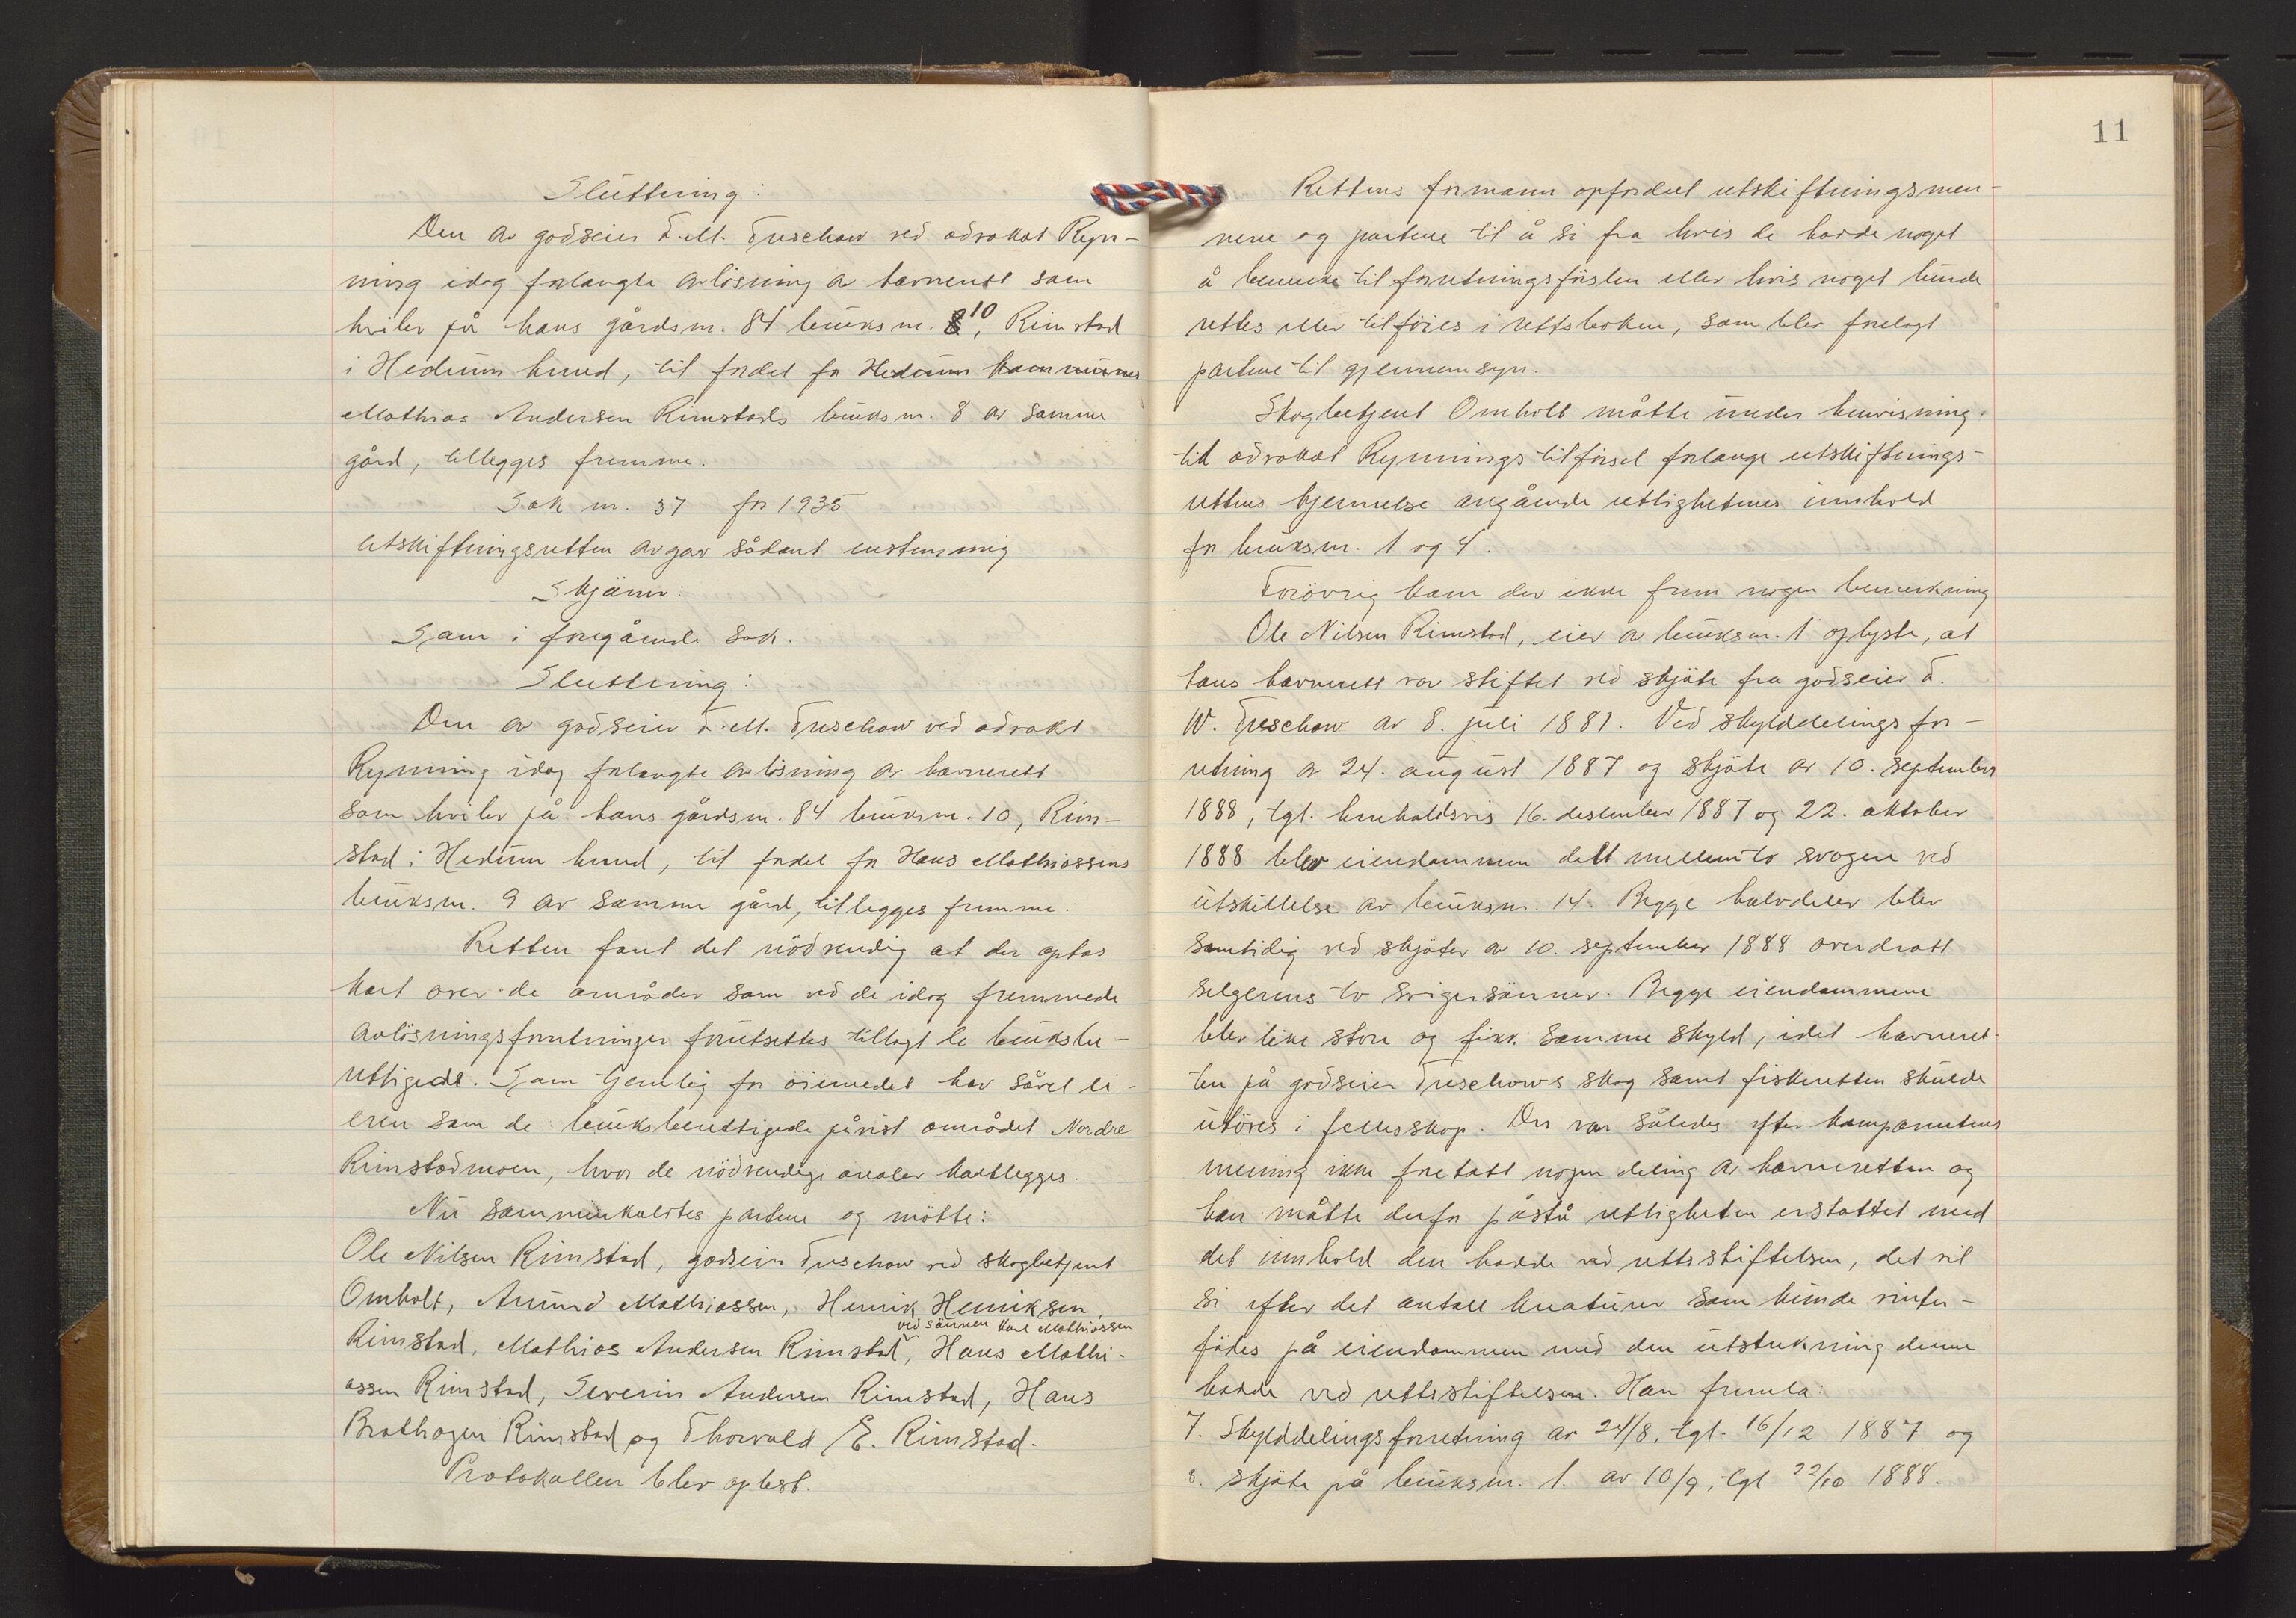 Slutning:
Den av godseier F. M. Treschow ved advokat Ryn-
ning idag forlangte avlösning av havnerett som
hviler på hans gårdsnr. 84 bruksnr. 10, Rimstad
i Hedrum herred, til fordel for Hedrum kommunes
Mathias Andersen Rimstads bruksnr. 8 av samme
gård, tillegges fremme.
Sak nr. 37 for 1935
Utskiftningsretten avgav sådant enstemmig
Skjönn:
Som i foregående sak.
Slutning:
Den av godseier F. M. Treschow ved advokt
Rynning idag forlangte avlösning av havnerett
som hviler på hans gårdsnr. 84 bruksnr. 10, Rim-
stad i Hedrum herred, til fordel for Hans Mathiassens
bruksnr. 9 av samme gård, tillegges fremme.
Retten fant det nödvendig at der optas
kart over de områder som ved de idag fremmede
avlösningsforretninger forutsettes tillagt de bruksbe-
rettigede. Som tjenlig for öiemedet har såvel ei-
eren som de bruksberettigede påvist området Nordre
Rimstadmoen, hvor de nödvendige arealer kartlegges.
Nu sammenkaldtes partene og mötte:
Ole Nilsen Rimstad, godseier Treschow ved skogbetjent
Omholt, Anund Mathiassen, Henrik Henriksen
ved sönnen Karl Mathiassen
Rimstad, Mathias Andersen Rimstad, Hans Mathi-
assen Rimstad, Severin Andersen Rimstad, Hans
Brathagen Rimstad og Thorvald E. Rimstad.
Protokollen blev oplest.
11
Rettens formann opfordret utskiftningsmen-
nene og partene til å si fra hvis de hadde noget
å bemerke til forretningsförslen eller hvis noget burde
rettes eller tilföies i rettsboken, som blev forelagt
partene til gjennemsyn.
Skogbetjent Omholt måtte under henvisning
til advokat Rynnings tilförsel forlange utskiftnings-
rettens kjennelse angående rettighetenes innhold
for bruksnr. 1 og 4.
Forövrig kom der ikke frem nogen bemerkning
Ole Nilsen Rimstad, eier av bruksnr. 1 oplyste, at
hans havnerett var stiftet ved skjöte fra godseier F.
W. Treschow av 8. juli 1881. Ved skylddelingsfor-
retning av 24. august 1887 og skjöte av 10. september
1888, tgl. henholdsvis 16. desember 1887 og 22. oktober
1888 blev eiendommen delt mellem to svogere ved
utskillelse av bruksnr. 14. Begge halvdeler blev
samtidig ved skjöter av 10. september 1888 overdratt
selgerens to svigersönner. Begge eiendommene
blev like store og fikk samme skyld, idet havneret-
ten på godseier Treschows skog samt fiskeretten skulde
utöves i fellesskap. Der var således efter komparentens
mening ikke foretatt nogen deling av havneretten og
han måtte derfor påstå rettigheten erstattet med
det innhold den hadde ved rettsstiftelsen, det vil
si efter det antall kreaturer som kunde vinter-
födes på eiendommen med den utstrekning denne
hadde ved rettsstiftelsen. Han fremla:
7. Skylddelingsforretning av 24/8, tgl. 16/12 1887 og
8. skjöte på bruksnr. 1. av 10/9, tgl 22/10 1888.